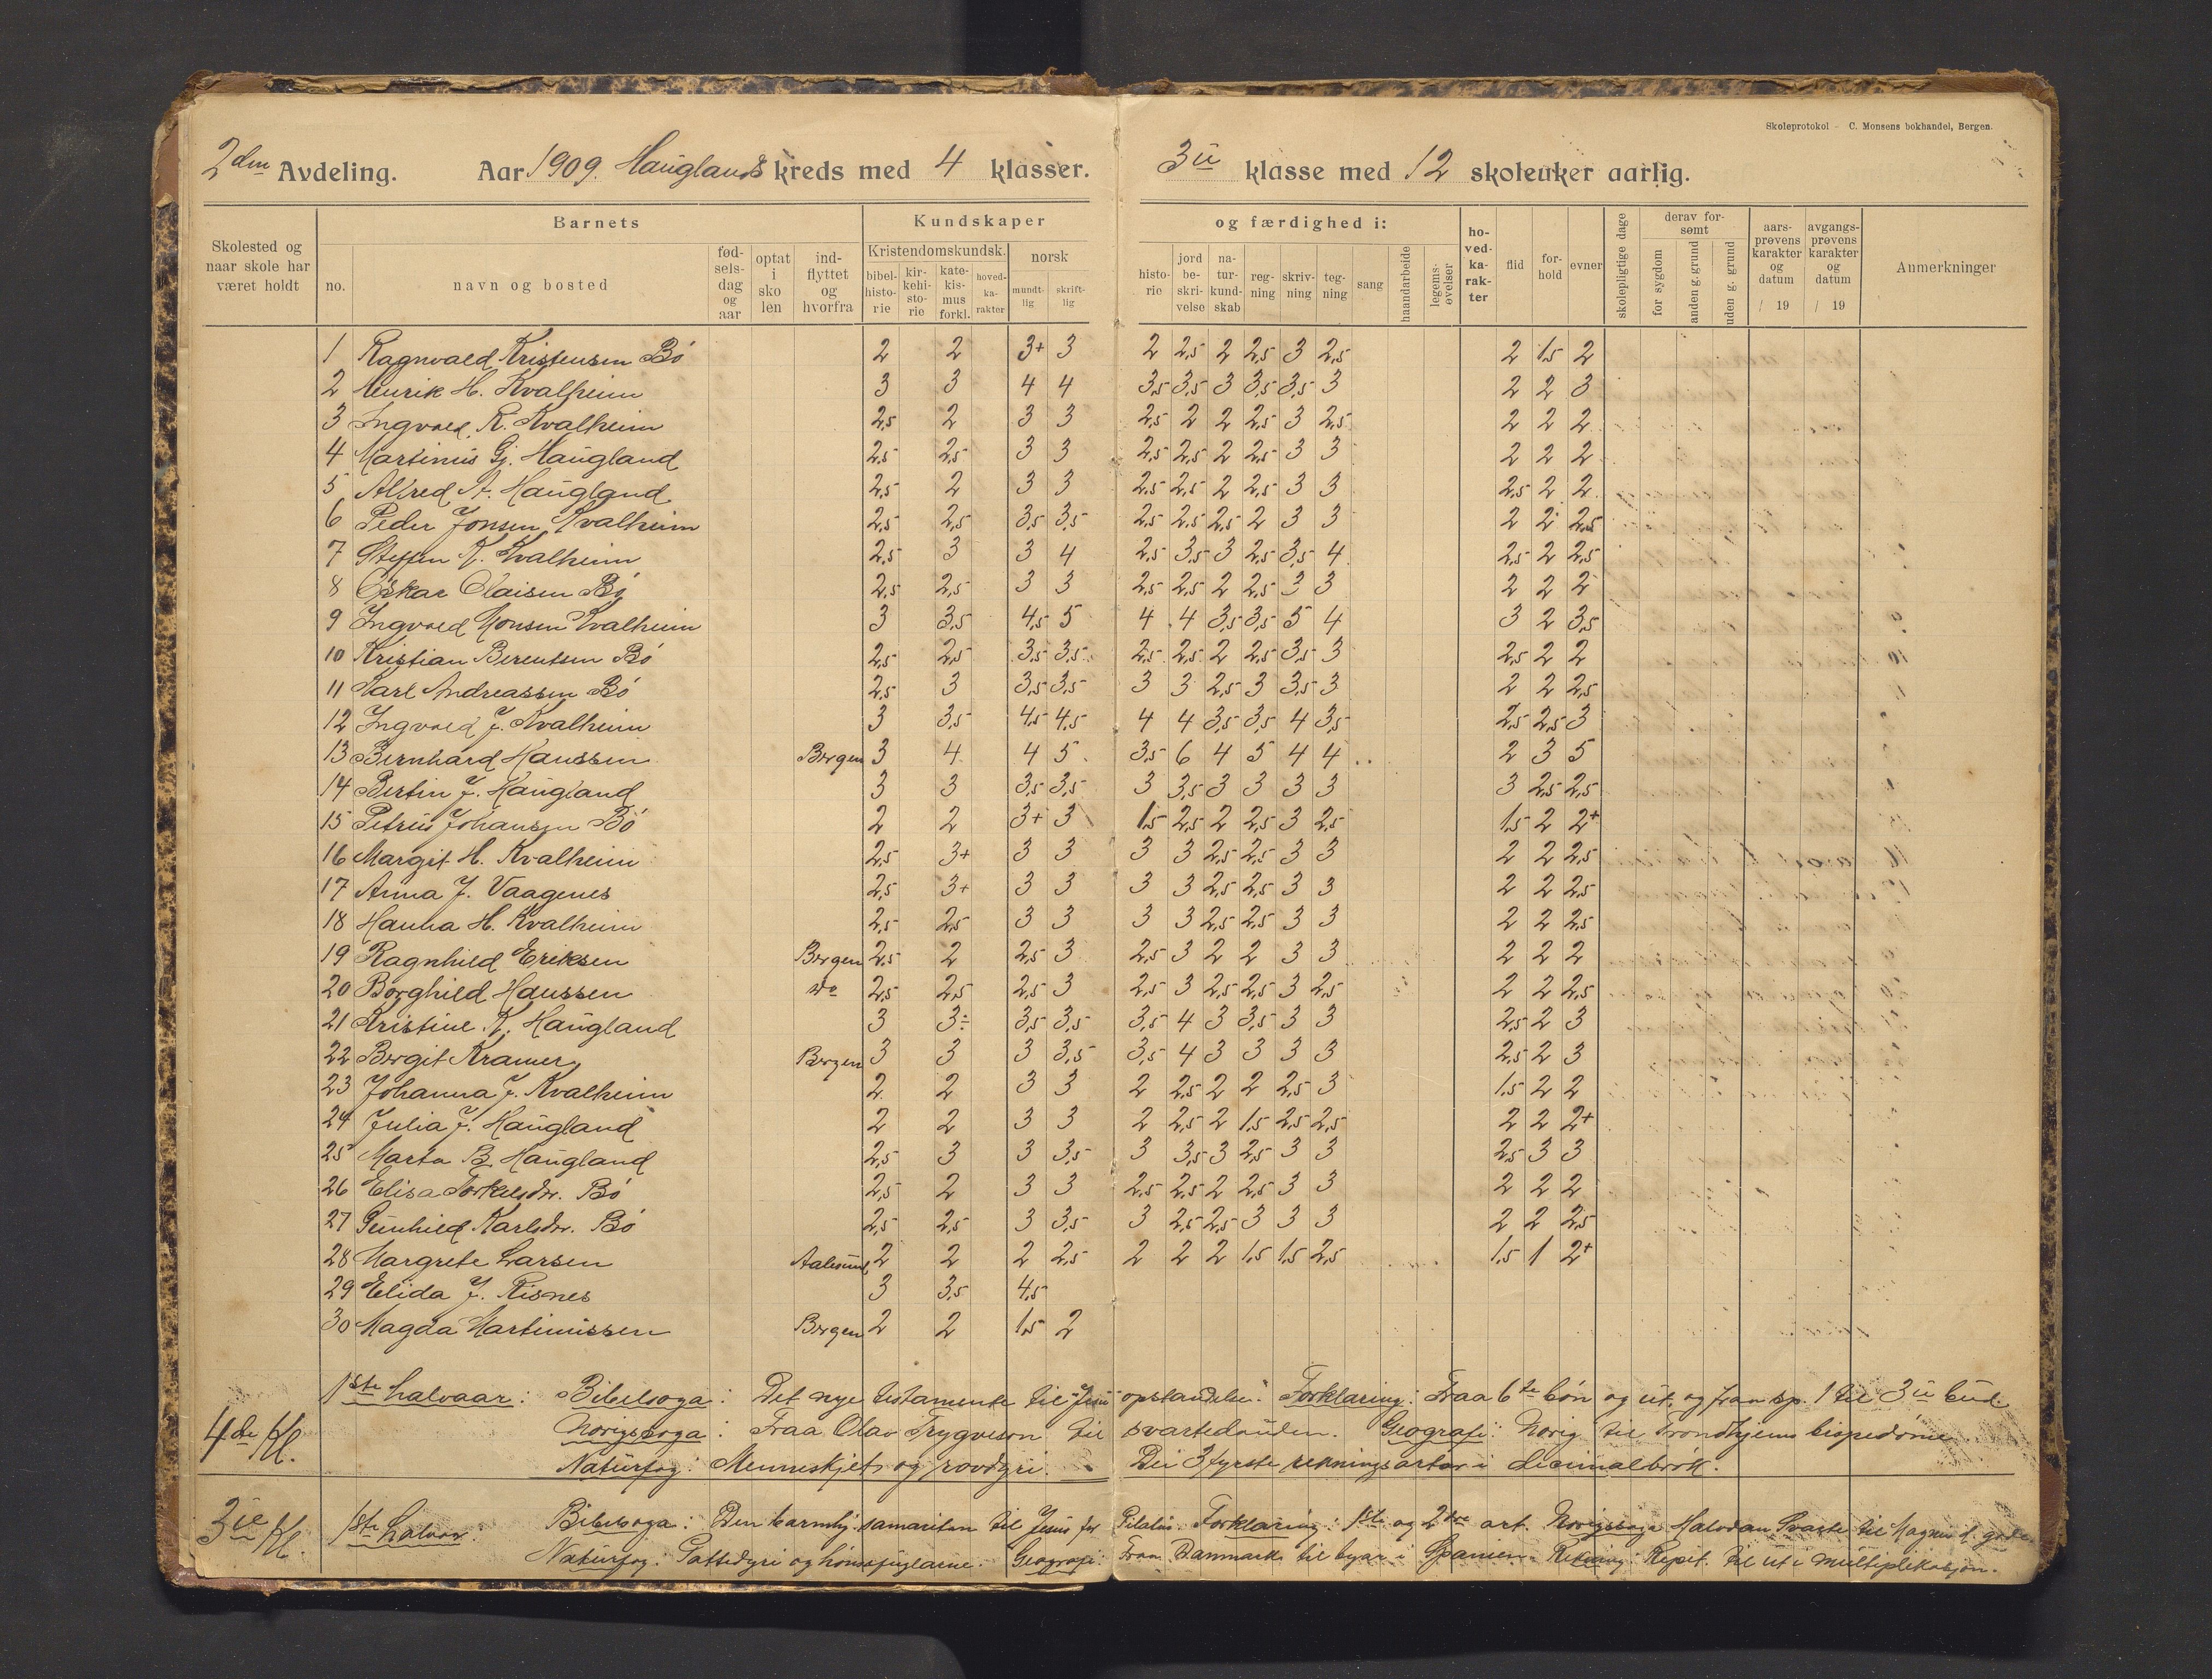 Skoleprotokol - C. Monsens bokhandel, Bergen.
2den Avdeling. Aar 1909. Hauglands kreds med 4 klasser. 3ie klasse med 12 skoleuker aarlig.
Skolested og naar skole har været holdt
Barnets
no. navn og bosted
fødselsdag og aar
optat i skolen
indflyttet og hvorfra
Kundskaper og færdighed i:
Kristendomskundsk.
bibelhistorie kirkehistorie katekismus forkl. hovedkarakter
norsk
mundtlig skriftlig
historie jordbeskrivelse naturkundskab regning skrivning tegning sang haandarbeide legemsøvelser
hovedkarakter
flid forhold evner
skolepligtige dage
derav forsømt
for sygdom anden g. grund uden g. grund
aarsprøvens karakter og datum / 19
avgangsprøvens karakter og datum / 19
Anmerkninger
1 Ragnvald Kristensen Bö 2 2 3+ 3 2 2,5 2 2,5 3 2,5 2 1,5 2
2 Henrik H. Kvalheim 3 3 4 4 3,5 3,5 3 3,5 3,5 3 2 2 3
3 Ingvald R. Kvalheim 2,5 2 3 3 2,5 2 2 2,5 3 2,5 2 2 2
4 Martinus Gj. Haugland 2,5 2,5 3 3 2,5 2,5 2 2,5 3 3 2 2 2
5 Alfred A. Haugland 2,5 2 3 3 2,5 2,5 2 2,5 3 3 2,5 2 2
6 Peder Jonsen Kvalheim 2,5 2,5 3,5 3,5 2,5 2,5 2,5 2 3 3 2 2 2,5
7 Steffen K. Kvalheim 2,5 3 3 4 2,5 3,5 3 2,5 3,5 4 2,5 2 2,5
8 Oskar Olaisen Bö 2,5 2,5 3 3 2,5 2,5 2 2,5 3 3 2 2 2
9 Ingvald Monsen Kvalheim 3 3,5 4,5 5 4 4 3,5 3,5 5 4 3 2 3,5
10 Kristian Berentsen Bö 2,5 2,5 3,5 3,5 2,5 2,5 2 2,5 3,5 3 2,5 2 2
11 Karl Andreassen Bö 2,5 3 3,5 3,5 3 3 2,5 3 3,5 3 2 2 2,5
12 Ingvald J. Kvalheim 3 3,5 4,5 4,5 4 4 3,5 3,5 4 3,5 2,5 2,5 3
13 Bernhard Hanssen Bergen 3 4 4 5 3,5 6 4 5 4 4 2 3 5
14 Bertin J. Haugland 3 3 3,5 3,5 3 3,5 3 3 3 3 3 2,5 2,5
15 Petrus Johansen Bö 2 2 3+ 3 1,5 2,5 2 2,5 3 2,5 1,5 2 2+
16 Margit H. Kvalheim 2,5 3+ 3 3 3 3 2,5 2,5 3 3 2 2 2,5
17 Anna J. Vaagenes 2,5 3+ 3 3 3 3 2,5 2,5 3 3 2 2 2,5
18 Hanna H. Kvalheim 2,5 2,5 3 3 3 3 2,5 2,5 3 3 2 2 2,5
19 Ragnhild Eriksen Bergen 2,5 2 2,5 3 2,5 3 2 2 3 3 2 2 2
20 Borghild Hanssen do 2,5 2,5 2,5 3 2,5 3 2,5 2,5 3 2,5 2 2 2,5
21 Kristine K. Haugland 3 3÷ 3,5 3,5 3,5 4 3 3,5 3 3 2,5 2 3
22 Bergit Kramer Bergen 3 3 3 3,5 3,5 4 3 3 3 3 2,5 2 3
23 Johanna J. Kvalheim 2 2 3 3 2 2,5 2 2 2,5 3 1,5 2 2
24 Julia J. Haugland 2 2 3 3 2 2,5 2 1,5 2,5 2,5 2 2 2+
25 Marta B. Haugland 2,5 3 3 3,5 3 3,5 3 2,5 3 3 2,5 3 3
26 Elisa Torkelsdr. Bö 2,5 2 3 3 2,5 2,5 2 2,5 3 3 2 2 2
27 Gunhild Karlsdr. Bö 2,5 2,5 3 3,5 3 2,5 2,5 3 3 3 2 2 2,5
28 Margrete Larsen Aalesund 2 2 2 2,5 2 2 2 1,5 1,5 2,5 1,5 1 2+
29 Elida J. Risnes 3 3,5 4,5
30 Magda Martinussen Bergen 2 2 1,5 2
4de Kl. 1ste halvaar: Bibelsoga: Det nye testamente til "Jesu opstandelse". Forklaring: Fraa 6te bön og ut, og fraa sp. 1 til 3ie bud.
Norigssoga: Fraa Olav Trygveson til svartedauden. Geografi: Norig til Trondhjems bispedöme.
Naturfog: Menneskjet og rovdyri. Dei 3 fyrste rekningsartar i decimalbrök.
3ie Kl. 1ste halvaar: Bibelsoga: Den barmhj. samaritan til Jesus for Pilatus. Forklaring: 1ste og 2dre art. Norigssoga Halvdan Svarte til Magnus d. gode.
Naturfog: Pattedyri og hönsefuglarne. Geografi: Fraa Danmark til byar i Spanien. Rekning: Repit. til ut i multiplikasjon.